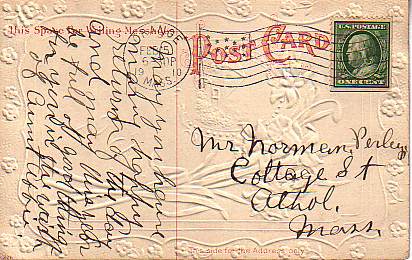 This Space for Writing Messages
POST CARD
U.S. POSTAGE
ONE CENT
FEB
19 10
MASS.
May you have
many happy
returns of the day
and may this year
be full of good things
for you is the wish
of Aunt Abbie
Mr Norman Perley
Cottage St
Athol.
Mass.
This side for the Address only